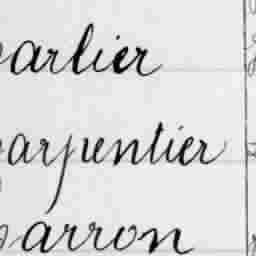 arlier
arpentier
arron